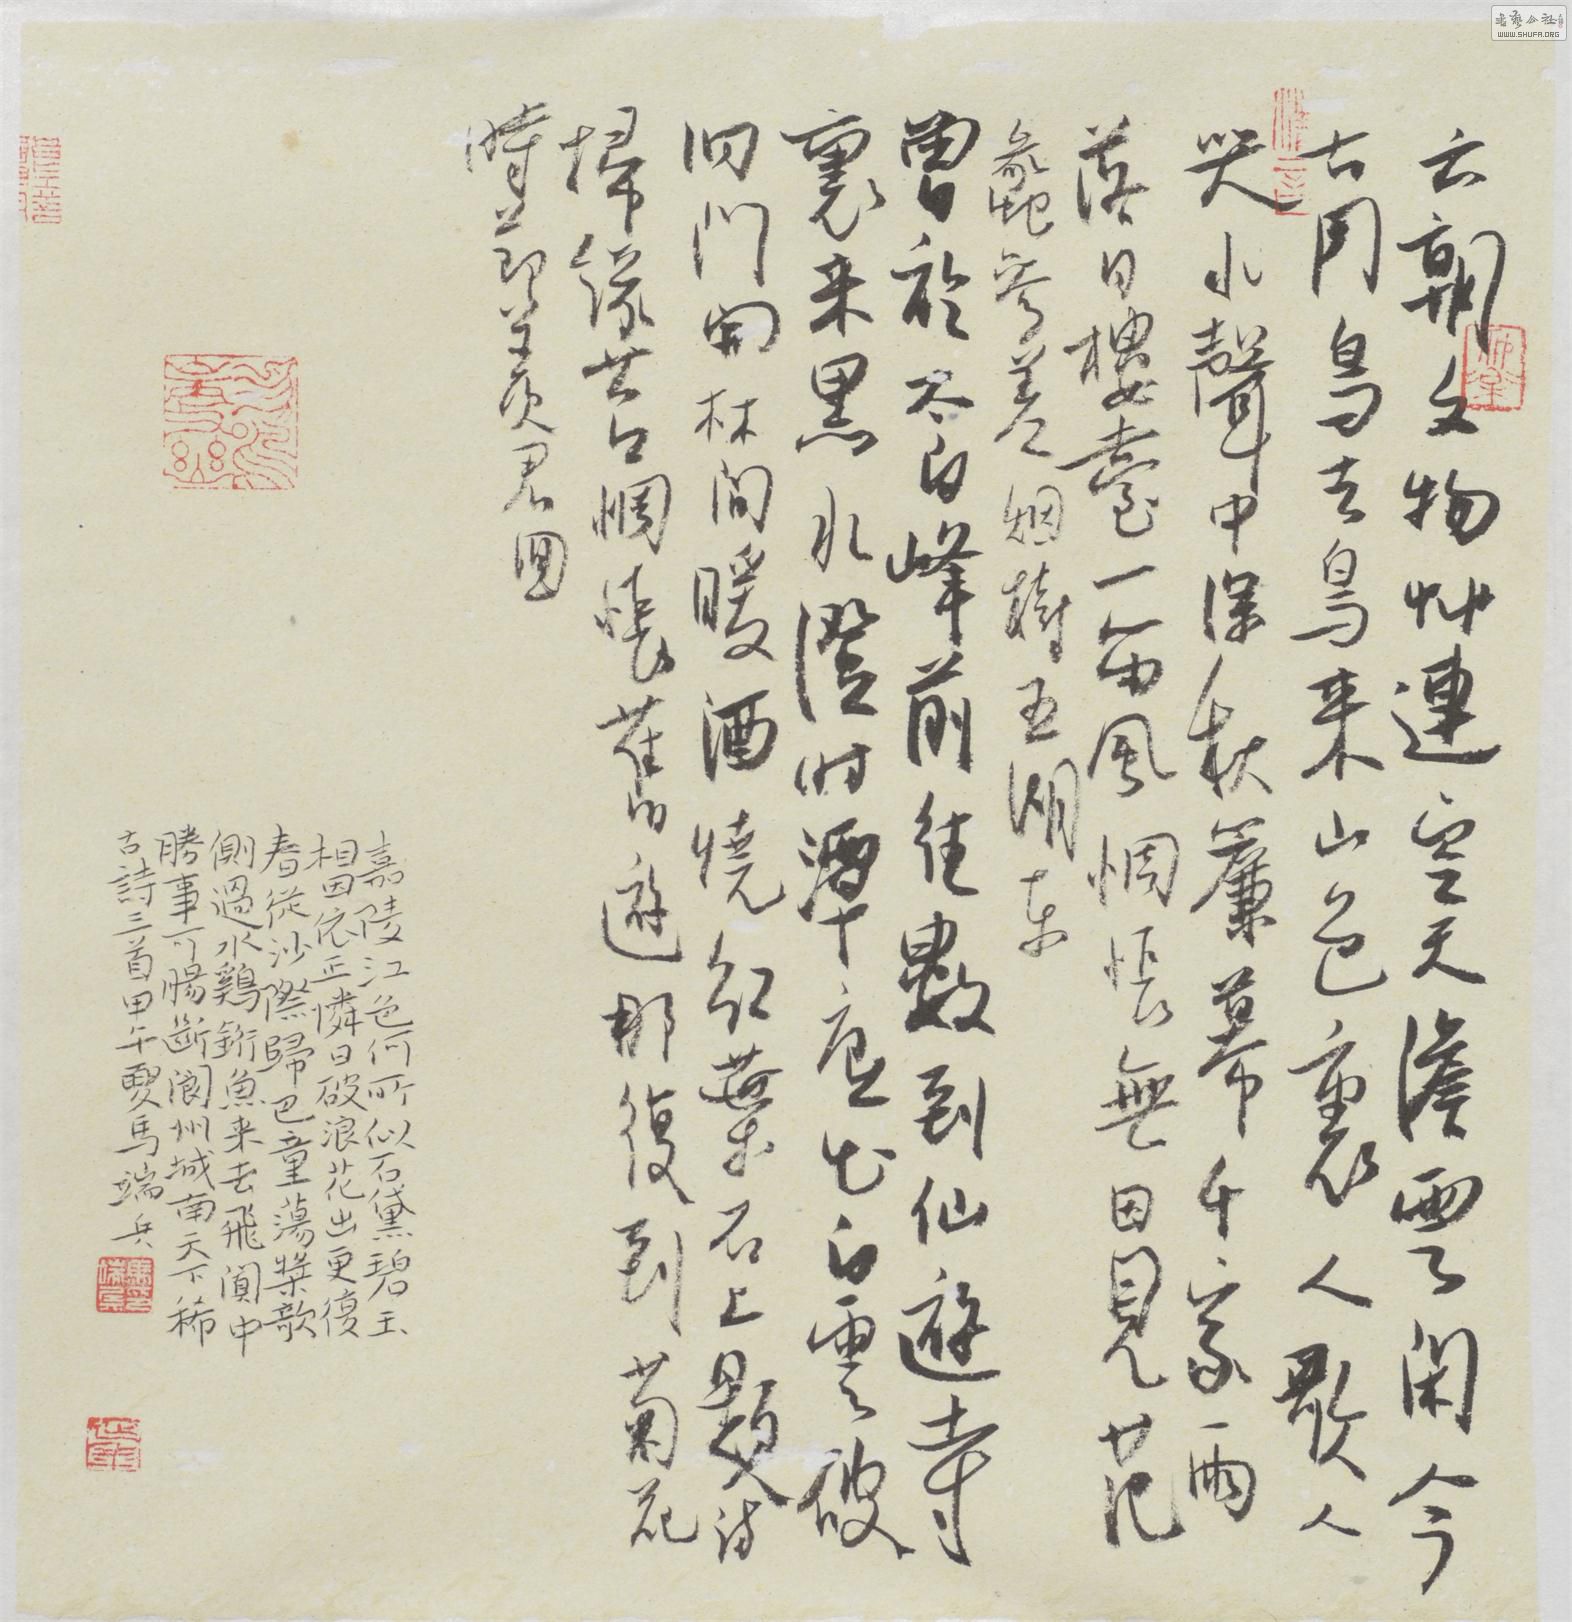 六朝文物艸連空天澹雲閑今
古同鳥去鳥来山色裏人歌人
哭水聲中深秋簾幕千家雨
落日樓臺一笛風惆悵無因見范
蠡參差烟樹五湖东
曾於太白峰前住數到仙遊寺
裏来黑水澄时潭底出白雲破
洞門開林間暖酒燒红葉石上題诗
掃緑苔惆悵舊遊那復到菊花
時節羡君回
嘉陵江色何所似石黛碧玉
相因依正憐日破浪花出更復
春從沙際歸巴童蕩槳歌
側過水鷄銜魚来去飛閬中
勝事可腸斷閬州城南天下稀
古詩三首甲午夏馬端兵
WWW.SHUFA.ORG